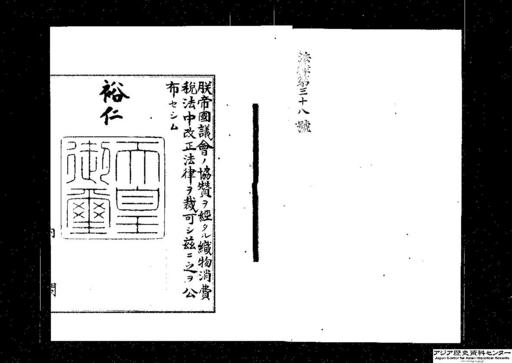 法律第三十八號
朕帝國議會ノ協贊ヲ經タル織物消費
稅法中改正法律ヲ裁可シ茲ニ之ヲ公
布セシム
裕仁
天皇
御璽
内
閣
アジア歴史資料センター
Japan Center for Asian Historical Records